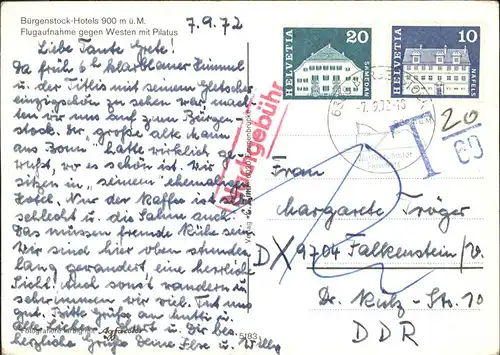 Bürgenstock-Hotels 900 m ü.M.
Flugaufnahme gegen Westen mit Pilatus
7.9.72
Liebe Tante Grete!
Da früh 6h klarblauer Himmel
u. der Titlis mit seinem Gletscher
einzigschön zu sehen war, mach-
ten wir uns auf zum Bürgen-
stock. Der "große alte Mann
aus Bonn" hatte wirklich ge-
wußt, wo es schön ist. Wir
sitzen in "seinem" ehemaligen
Hotel. Nur der Kaffee ist
schlecht u. die Sahne auch.
Das müssen fremde Kühe sein.
Wir sind hier oben stunden
lang gewandert, eine herrliche
Sicht! Auch sonst wandern u
schwimmen wir viel. Tut uns
gut. Bitte Grüße an
alle Lieben, u. Dir bes.
herzliche Grüße Deine Else u. Willy
HELVETIA
20
SAMEDAN
HELVETIA
10
NÄFELS
-7. 9.72-18
Nachgebühr
T
20
60
Frau
Margarete Tröger
DX 9704 Falkenstein/V.
Dr. Kutz-Str. 10
DDR
Agfacolor
5183